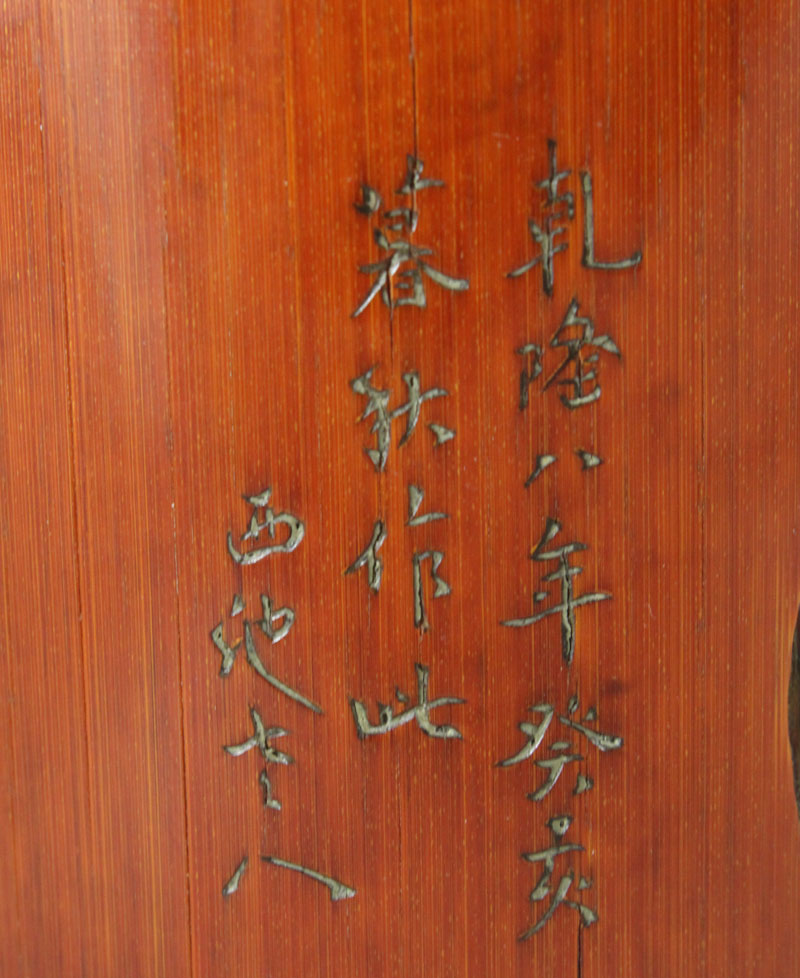 乾隆八年癸亥
暮秋作此
西池主人